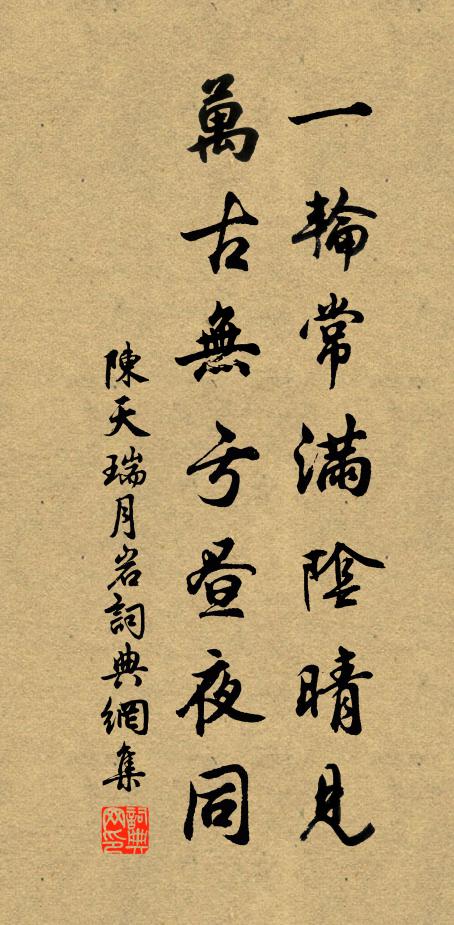 一輪常滿陰晴見
萬古無亏晝夜同
陳天瑞月岩詞典網集
詞典网印